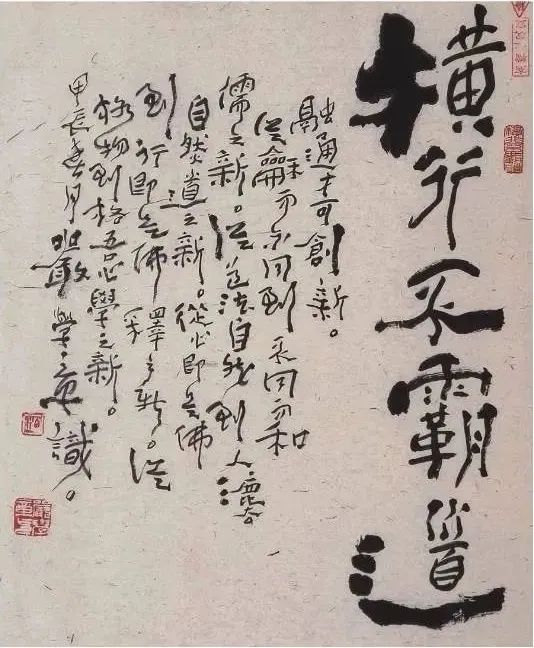 橫行不霸道
融通才可創新。
從龢而不同到不同而和
儒之新。從道法自然到人灋
自然道之新。從心即是佛
到行即是佛釋之新。從
格物到格吾心學之新。
甲辰春月嚴學章識。